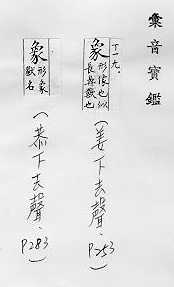 彙音寶鑑
十一九.
象 形像也似
長鼻獸也
(姜下去聲. P253)
象 形象
獸名
(恭下去聲. P283)